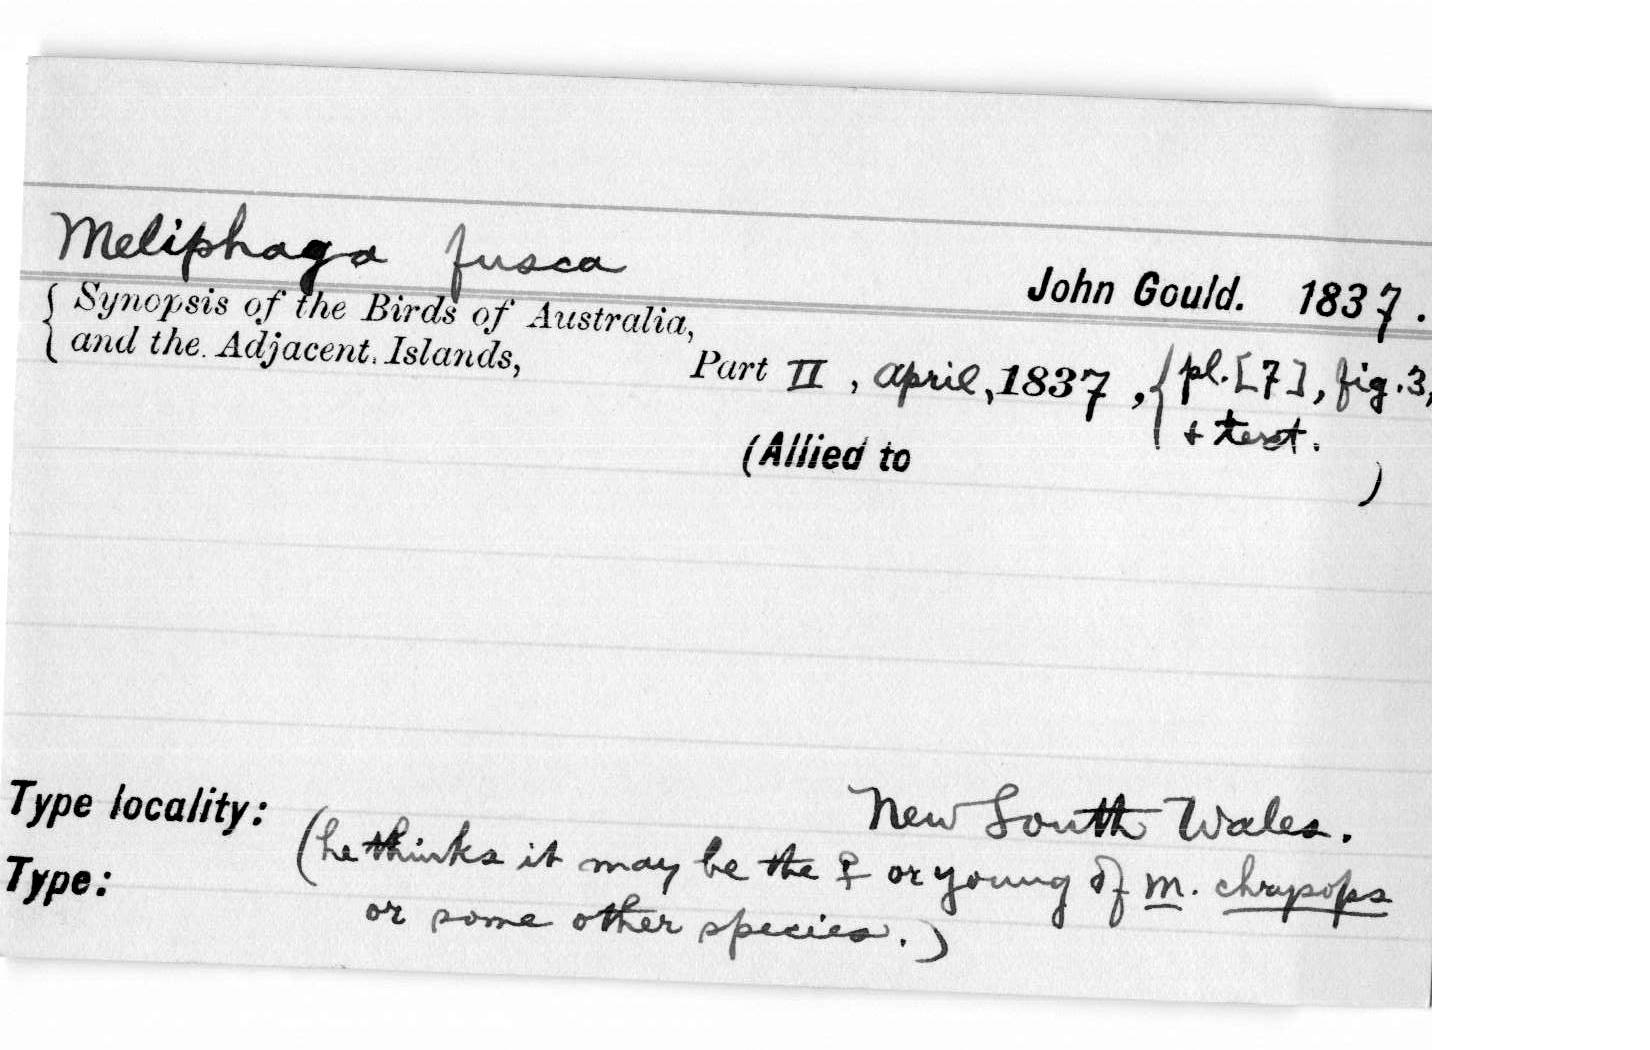 Meliphaga fusca
John Gould. 1837.
{ Synopsis of the Birds of Australia,
and the Adjacent Islands,
Part II, April, 1837, { pl. [7], fig. 3,
+ text.
(Allied to )
Type locality: New South Wales.
(he thinks it may be the ♀ or young of M. chrysops
Type:
or some other species.)